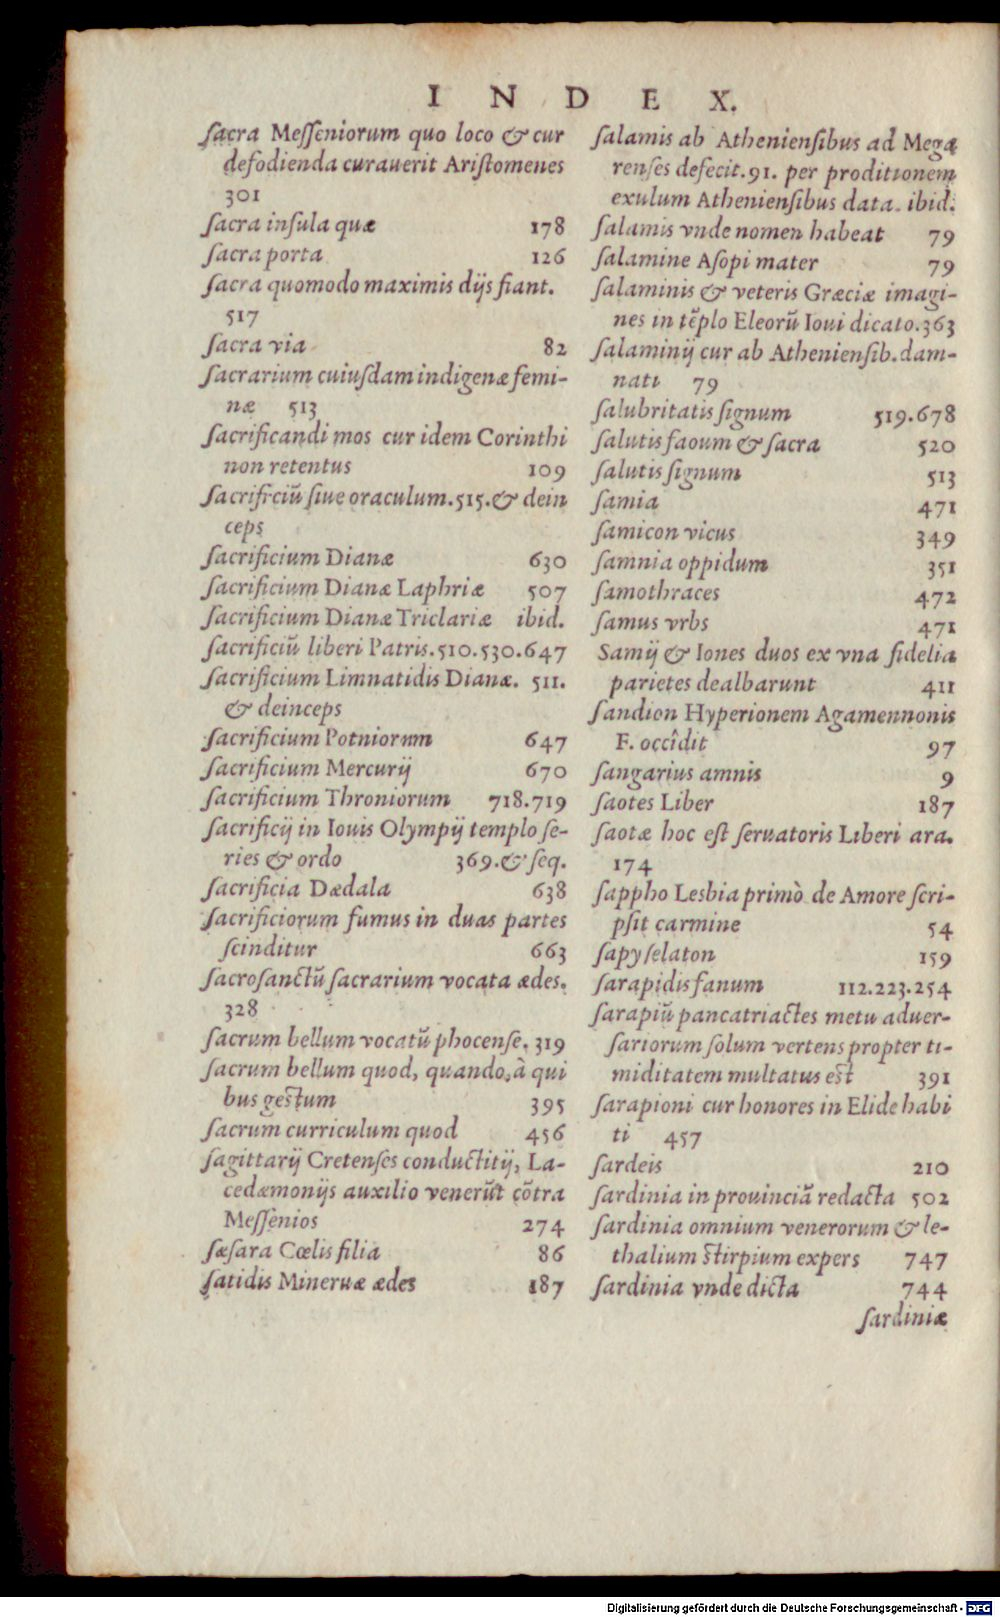 I N D E X.
ſacra Meſſeniorum quo loco & cur
defodienda curauerit Ariſtomenes
301
ſacra inſula quæ 178
ſacra porta 126
ſacra quomodo maximis dijs fiant.
517
ſacra via 82
ſacrarium cuiuſdam indigenæ femi-
næ 513
ſacrificandi mos cur idem Corinthi
non retentus 109
ſacrificiū ſiue oraculum.515.& dein
ceps
ſacrificium Dianæ 630
ſacrificium Dianæ Laphriæ 507
ſacrificium Dianæ Triclariæ ibid.
ſacrificiū liberi Patris.510.530.647
ſacrificium Limnatidis Dianæ. 511.
& deinceps
ſacrificium Potniorum 647
ſacrificium Mercurij 670
ſacrificium Throniorum 718.719
ſacrificij in Iouis Olympij templo ſe-
ries & ordo 369.& ſeq.
ſacrificia Dædala 638
ſacrificiorum fumus in duas partes
ſcinditur 663
ſacroſanctū ſacrarium vocata ædes.
328
ſacrum bellum vocatū phocenſe. 319
ſacrum bellum quod, quando, à qui
bus geſtum 395
ſacrum curriculum quod 456
ſagittarij Cretenſes conductitij, La-
cedæmonijs auxilio venerūt cōtra
Meſſenios 274
ſæſara Cœlis filia 86
ſatidis Mineruæ ædes 187
ſalamis ab Athenienſibus ad Mega
renſes defecit.91. per proditionem
exulum Athenienſibus data. ibid.
ſalamis vnde nomen habeat 79
ſalamine Aſopi mater 79
ſalaminis & veteris Græciæ imagi-
nes in tēplo Eleorū Ioui dicato.363
ſalaminij cur ab Athenienſib. dam-
nati 79
ſalubritatis ſignum 519.678
ſalutis faoum & ſacra 520
ſalutis ſignum 513
ſamia 471
ſamicon vicus 349
ſamnia oppidum 351
ſamothraces 472
ſamus vrbs 471
Samij & Iones duos ex vna fidelia
parietes dealbarunt 411
ſandion Hyperionem Agamennonis
F. occîdit 97
ſangarius amnis 9
ſaotes Liber 187
ſaotæ hoc eſt ſeruatoris Liberi ara.
174
ſappho Lesbia primò de Amore ſcri-
pſit carmine 54
ſapyſelaton 159
ſarapidis fanum 112.223.254
ſarapiū pancatriactes metu aduer-
ſariorum ſolum vertens propter ti-
miditatem multatus eſt 391
ſarapioni cur honores in Elide habi
ti 457
ſardeis 210
ſardinia in prouinciā redacta 502
ſardinia omnium venerorum & le-
thalium ſtirpium expers 747
ſardinia vnde dicta 744
ſardiniæ
Digitalisierung gefördert durch die Deutsche Forschungsgemeinschaft - DFG